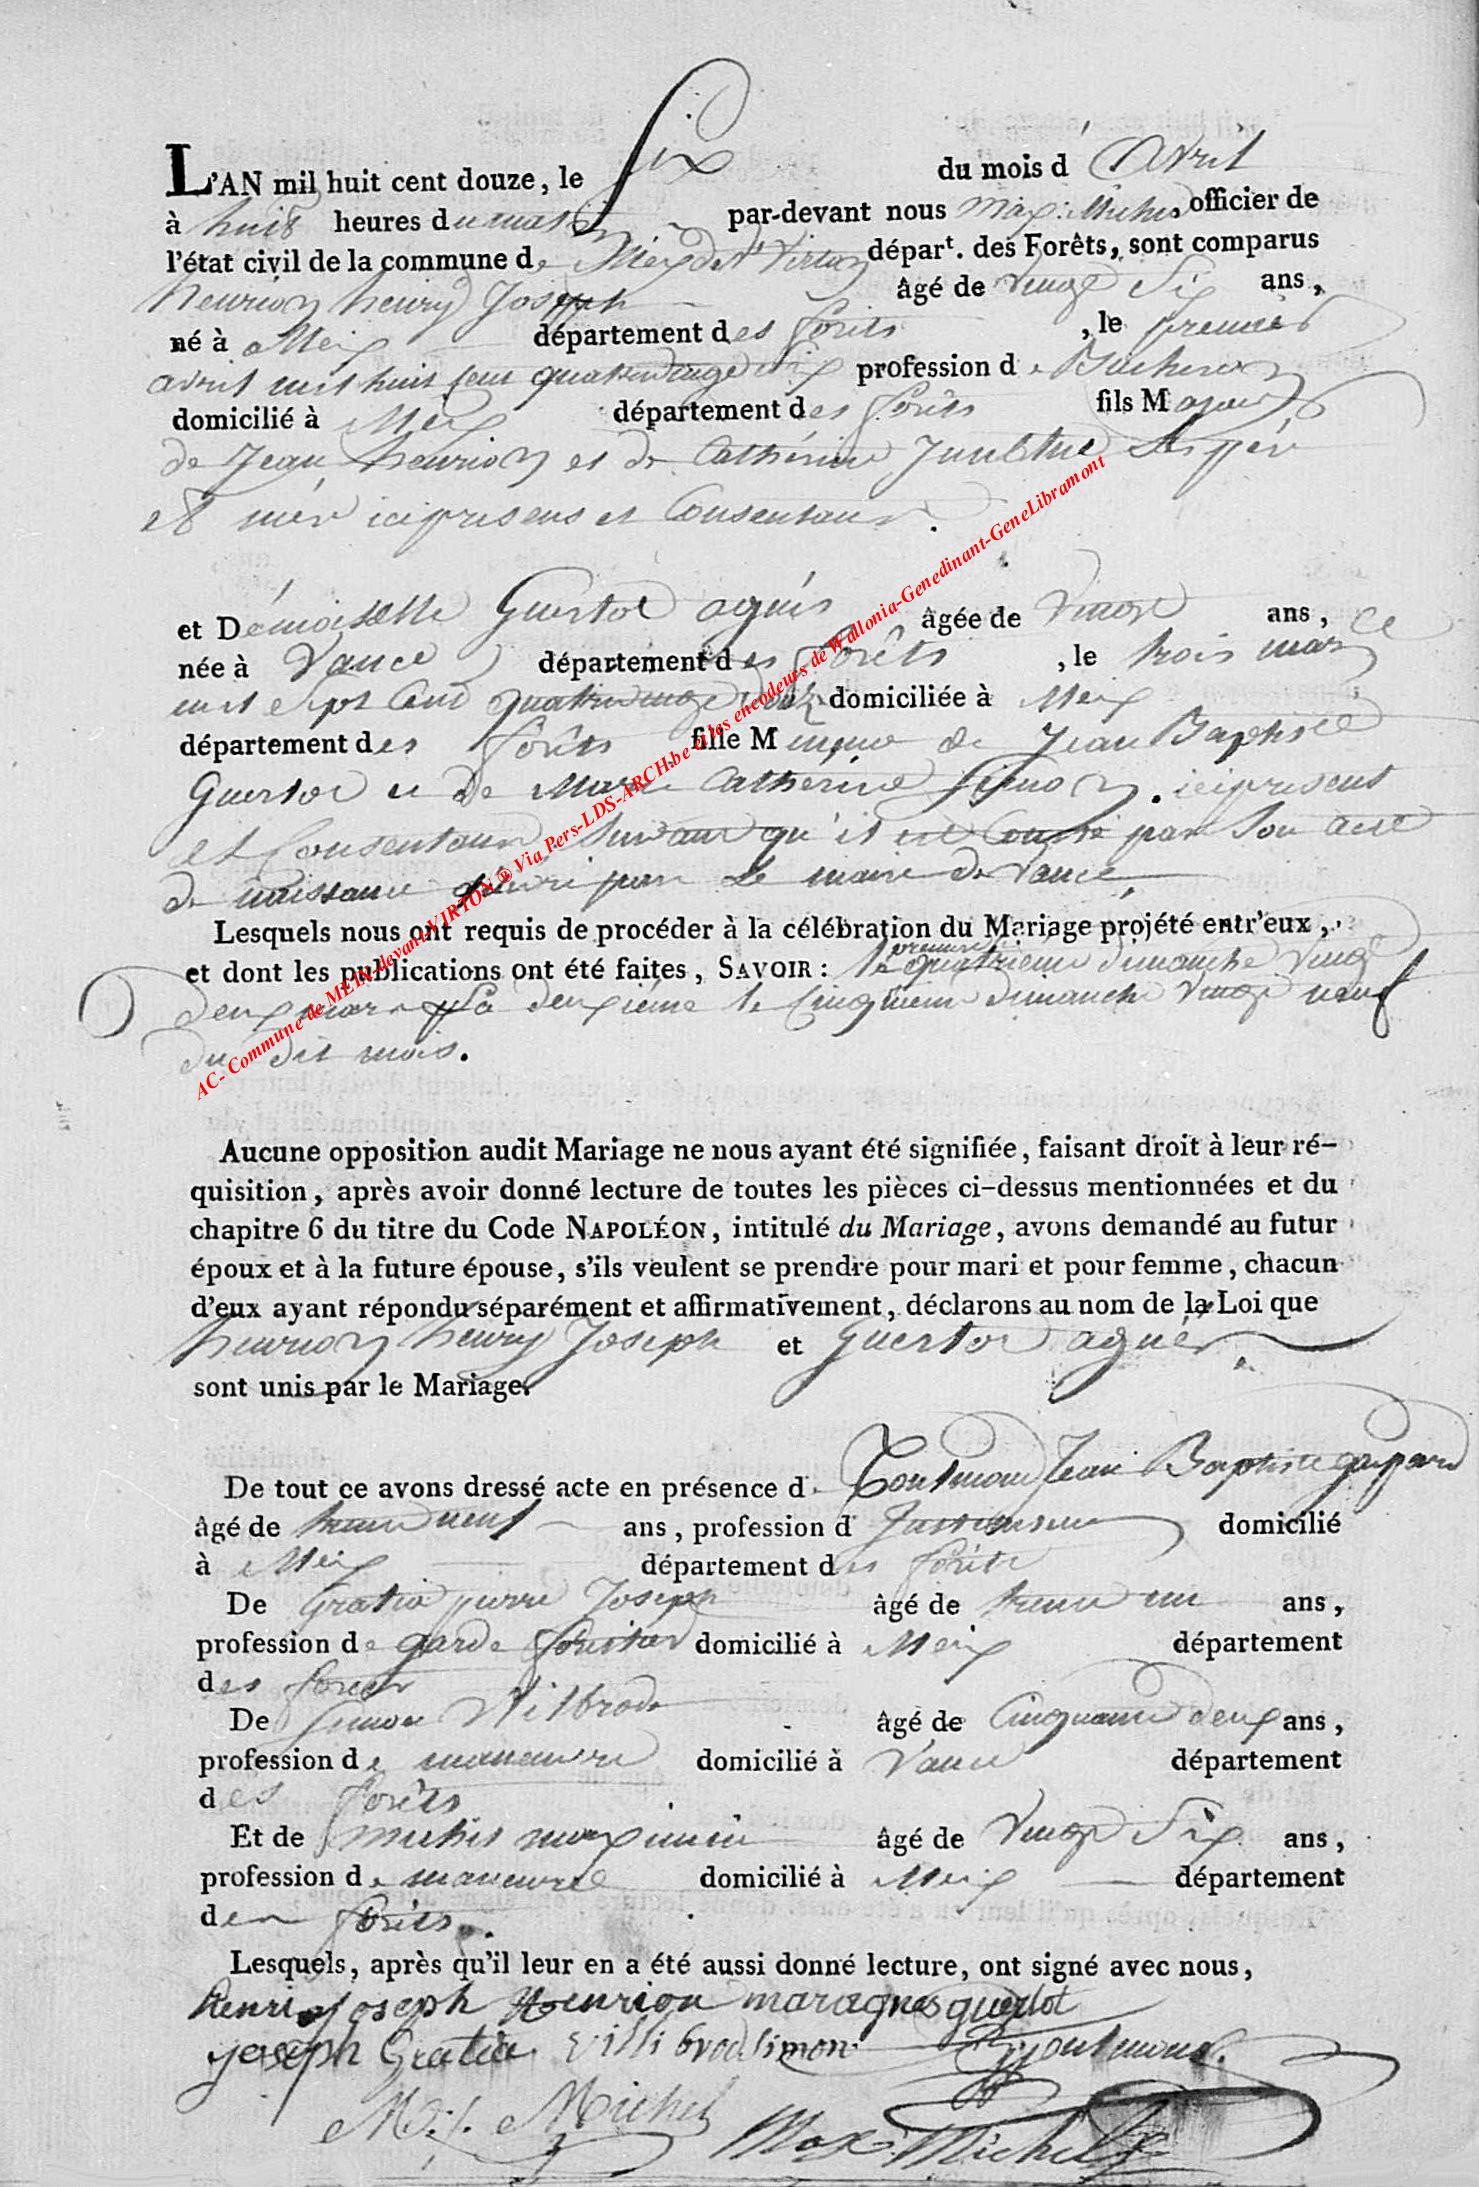 L'AN mil huit cent douze, le Six du mois d'Avril
à huit heures du matin par-devant nous Max: Michel, officier de
l'état civil de la commune de Meix dt Virton départ. des Forêts, sont comparus
henrion henry Joseph âgé de Vingt Six ans,
né à Meix département des forêts, le premier
avril mil huit cent quatrevingt six profession de Bucheron
domicilié à Meix département des forêts fils Majeur
de Jean henrion et de Cathérine ses père
et mère ici présens et Consentans.
et Démoiselle Guerlot agnès âgée de Vingt ans,
née à Vance département des forêts, le trois mars
mil sept Cent quatrevingt domiciliée à Meix
département des forêts fille Mineure de Jean Baptiste
Guerlot et de Marie Cathérine Simon. ici présens
et Consentans suivant qu'il est par son acte
de naissance délivré par Le maire de Vance,
Lesquels nous ont requis de procéder à la célébration du Mariage projété entr'eux,
et dont les publications ont été faites, SAVOIR: la première le quatrieme dimanche Vingt
deux mars La deuxième le Cinquieme dimanche Vingt neuf
du dit mois.
Aucune opposition audit Mariage ne nous ayant été signifiée, faisant droit à leur ré-
quisition, après avoir donné lecture de toutes les pièces ci-dessus mentionnées et du
chapitre 6 du titre du Code NAPOLÉON, intitulé du Mariage, avons demandé au futur
époux et à la future épouse, s'ils veulent se prendre pour mari et pour femme, chacun
d'eux ayant répondu séparément et affirmativement, déclarons au nom de la Loi que
henrion henry Joseph et Guerlot agnès
sont unis par le Mariage.
De tout ce avons dressé acte en présence de Toulmond Jean Baptiste gaspard
âgé de trente neuf ans, profession d domicilié
à Meix département des forêts
De Gratia pierre Joseph âgé de trente un ans,
profession de garde forestier domicilié à Meix département
des forets
De Simon Wilbrode âgé de Cinquante deux ans,
profession de manœuvre domicilié à Vance département
des forêts
Et de michel maximin âgé de Vingt Six ans,
profession de manœuvre domicilié à Meix département
des forêts.
Lesquels, après qu'il leur en a été aussi donné lecture, ont signé avec nous,
henri joseph henrion maragnes guerlot
joseph Gratia villi brod simon Toulmond.
M: Michel Max: Michel
AC- Commune de MEIX-devant-VIRTON @ Via Pers-LDS-ARCH.be et les encodeurs de Wallonia-Genedinant-GeneLibramont